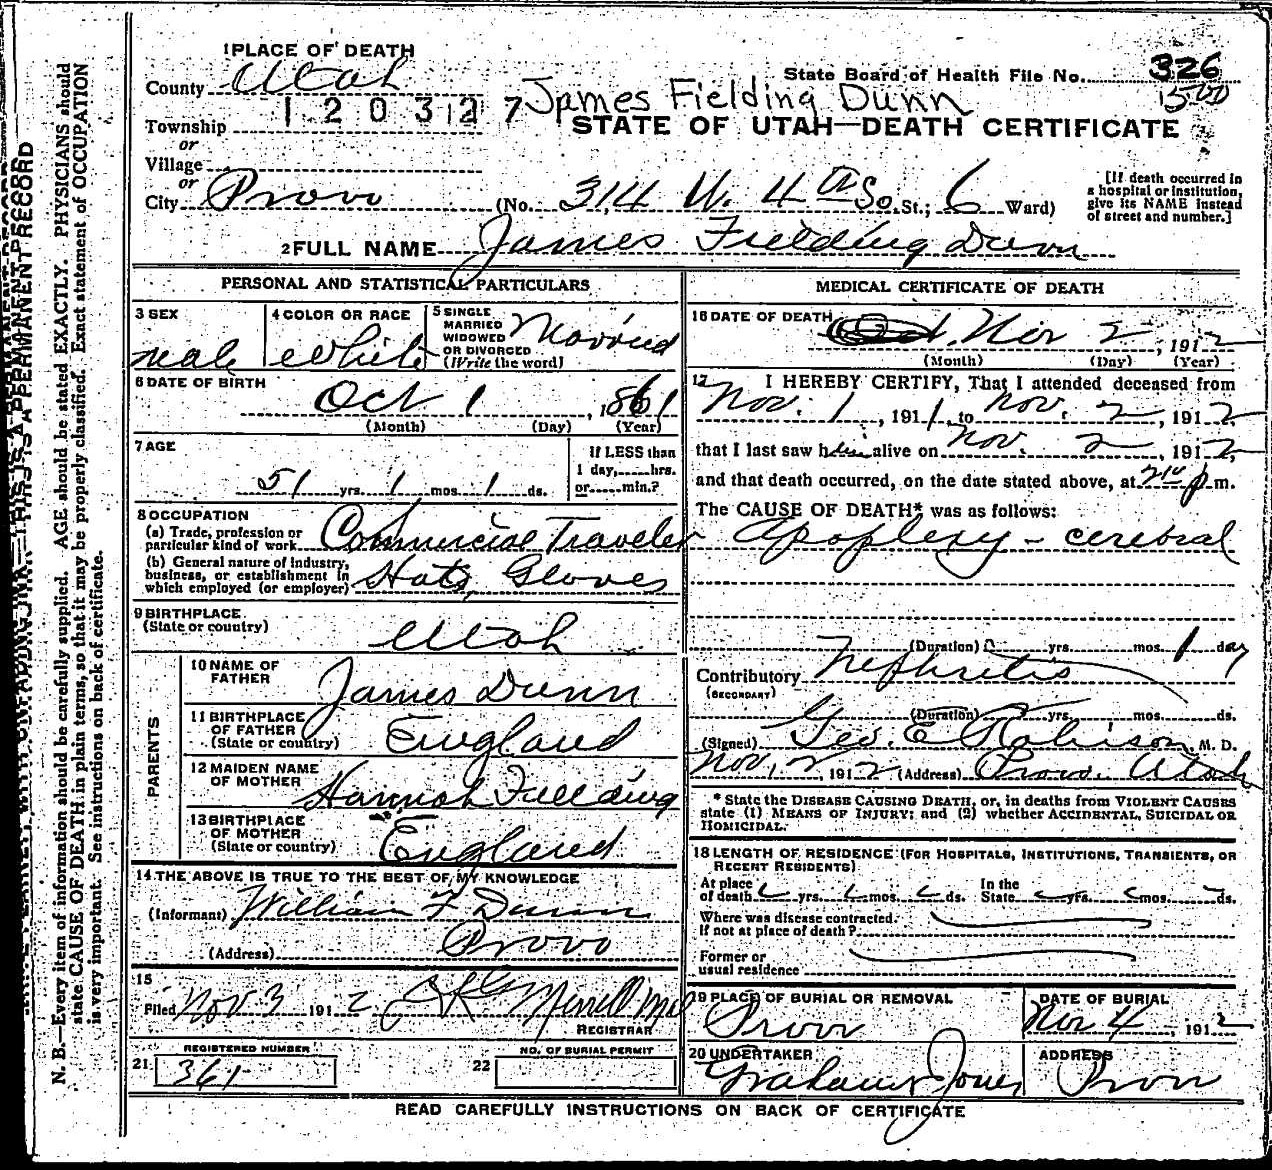 1 PLACE OF DEATH
County Utah
State Board of Health File No. 326
1500
1 2 0 3 2 7 James Fielding Dunn
Township
or
STATE OF UTAH—DEATH CERTIFICATE
Village
or
City Provo (No. 314 W. 4th So. St.; 6 Ward)
[If death occurred in
a hospital or institution,
give its NAME instead
of street and number.]
2 FULL NAME James Fielding Dunn
PERSONAL AND STATISTICAL PARTICULARS
3 SEX
male
4 COLOR OR RACE
White
5 SINGLE
MARRIED
WIDOWED
OR DIVORCED
(Write the word)
Married
6 DATE OF BIRTH
Oct 1, 1861
(Month) (Day) (Year)
7 AGE
51 yrs. 1 mos. 1 ds.
If LESS than
1 day, hrs.
or min.?
8 OCCUPATION
(a) Trade, profession or
particular kind of work Commercial Traveler
(b) General nature of industry,
business, or establishment in
which employed (or employer) Hats, Gloves
9 BIRTHPLACE
(State or country)
Utah
PARENTS
10 NAME OF
FATHER
James Dunn
11 BIRTHPLACE
OF FATHER
(State or country)
England
12 MAIDEN NAME
OF MOTHER
Hannah Fielding
13 BIRTHPLACE
OF MOTHER
(State or country)
England
14 THE ABOVE IS TRUE TO THE BEST OF MY KNOWLEDGE
(Informant) William F Dunn
(Address) Provo
15
Filed Nov 3 1912
REGISTRAR
REGISTERED NUMBER
21 361
NO. OF BURIAL PERMIT
22
MEDICAL CERTIFICATE OF DEATH
16 DATE OF DEATH
Nov 2, 1912
(Month) (Day) (Year)
17 I HEREBY CERTIFY, That I attended deceased from
Nov. 1, 1911, to Nov. 2, 1912,
that I last saw him alive on Nov. 2, 1912,
and that death occurred, on the date stated above, at p.m.
The CAUSE OF DEATH* was as follows:
Apoplexy - cerebral
(Duration) yrs. mos. 1 day
Contributory Nephritis
(SECONDARY)
(Duration) yrs. mos. ds.
(Signed) Geo. E Robison, M. D.
Nov. 2, 1912 (Address) Provo. Utah
* State the DISEASE CAUSING DEATH, or, in deaths from VIOLENT CAUSES
state (1) MEANS OF INJURY; and (2) whether ACCIDENTAL, SUICIDAL OR
HOMICIDAL.
18 LENGTH OF RESIDENCE (FOR HOSPITALS, INSTITUTIONS, TRANSIENTS, OR
RECENT RESIDENTS)
At place
of death yrs. mos. ds.
In the
State yrs. mos. ds.
Where was disease contracted.
If not at place of death?
Former or
usual residence
19 PLACE OF BURIAL OR REMOVAL
Provo
DATE OF BURIAL
Nov 4, 1912
20 UNDERTAKER
Graham Jones
ADDRESS
Provo
READ CAREFULLY INSTRUCTIONS ON BACK OF CERTIFICATE
THIS IS A PERMANENT RECORD
N. B.—Every item of information should be carefully supplied. AGE should be stated EXACTLY. PHYSICIANS should
state CAUSE OF DEATH in plain terms, so that it may be properly classified. Exact statement of OCCUPATION
is very important. See instructions on back of certificate.